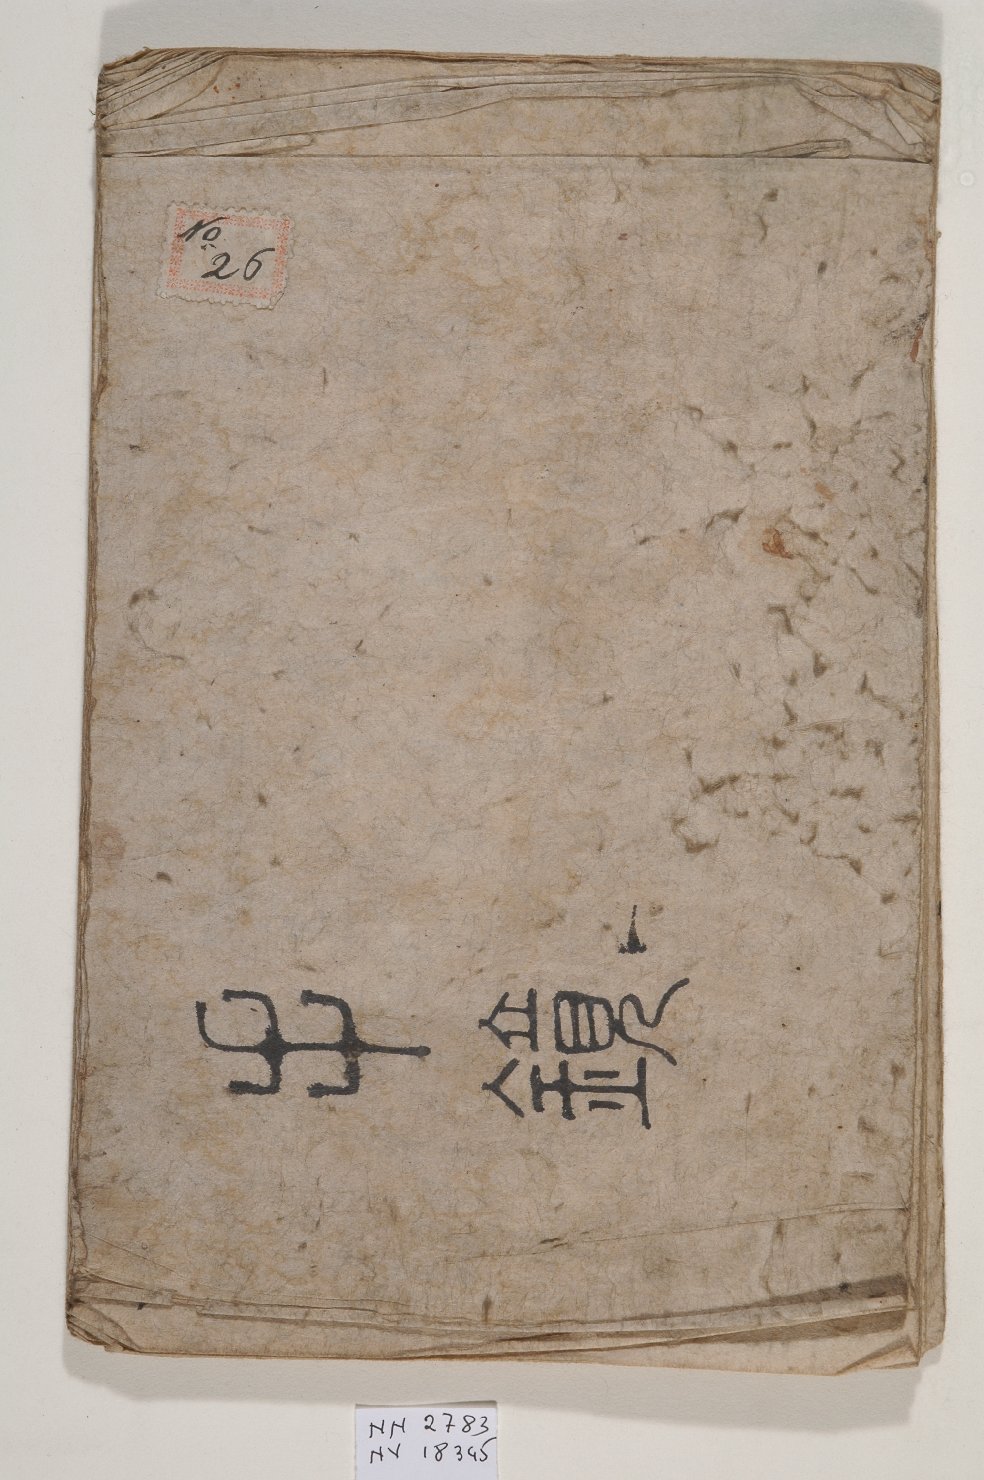 No 26
手
鏡
NN 2783
NV 18345